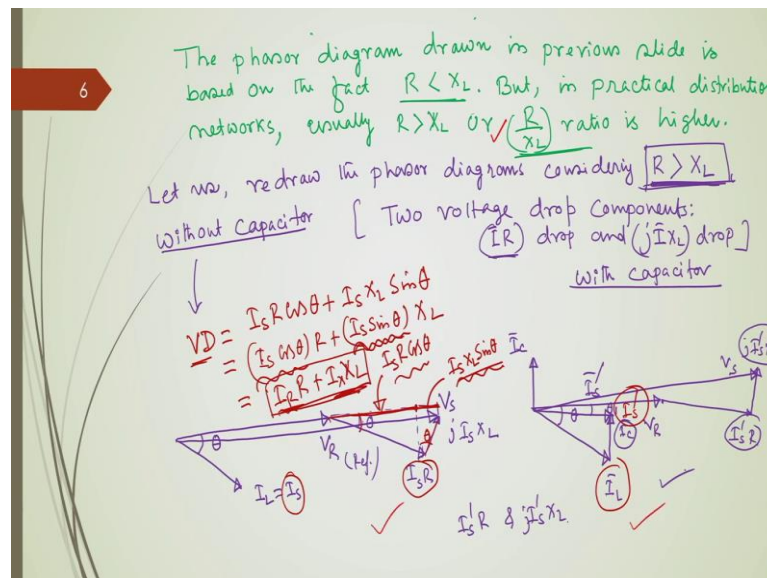 6
The phasor diagram drawn in previous slide is
based on the fact R < X_L. But, in practical distribution
networks, usually R > X_L or (R/X_L) ratio is higher.
Let us, redraw the phasor diagrams considering R > X_L
Without Capacitor [ Two voltage drop components:
(ĪR) drop and (jĪX_L) drop ]
with capacitor
VD = I_S R Cos θ + I_S X_L Sin θ
= (I_S Cos θ) R + (I_S Sin θ) X_L
= I_R R + I_X X_L
I_S R Cos θ
I_S X_L Sin θ
V_S
θ
θ
θ
V_R (Ref.)
j I_S X_L
I_S R
I_L = I_S
Ī_C
Ī_S'
V_S
θ
I_S'
I_C
V_R
I_S' R
Ī_L
I_S' R & jI_S' X_L.